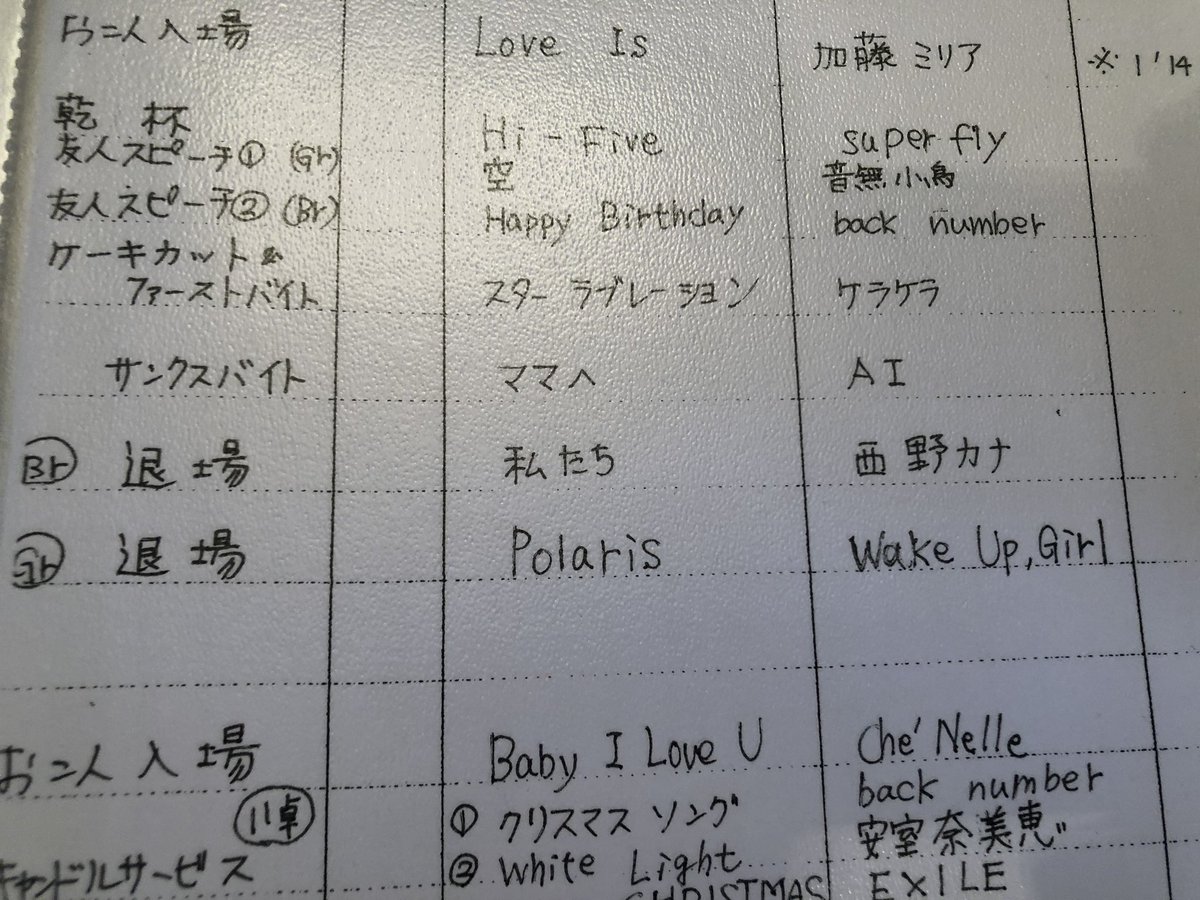 お二人入場 Love Is 加藤ミリア ※1'14
乾杯 Hi-Five superfly
友人スピーチ① (Gr) 空 音無小鳥
友人スピーチ② (Br) Happy Birthday back number
ケーキカット&
ファーストバイト スターラブレーション ケラケラ
サンクスバイト ママへ AI
Br 退場 私たち 西野カナ
Gr 退場 Polaris Wake Up, Girl
お二人入場 Baby I Love U Che'Nelle
11卓 ① クリスマスソング back number
キャンドルサービス ② White Light 安室奈美恵
CHRISTMAS EXILE